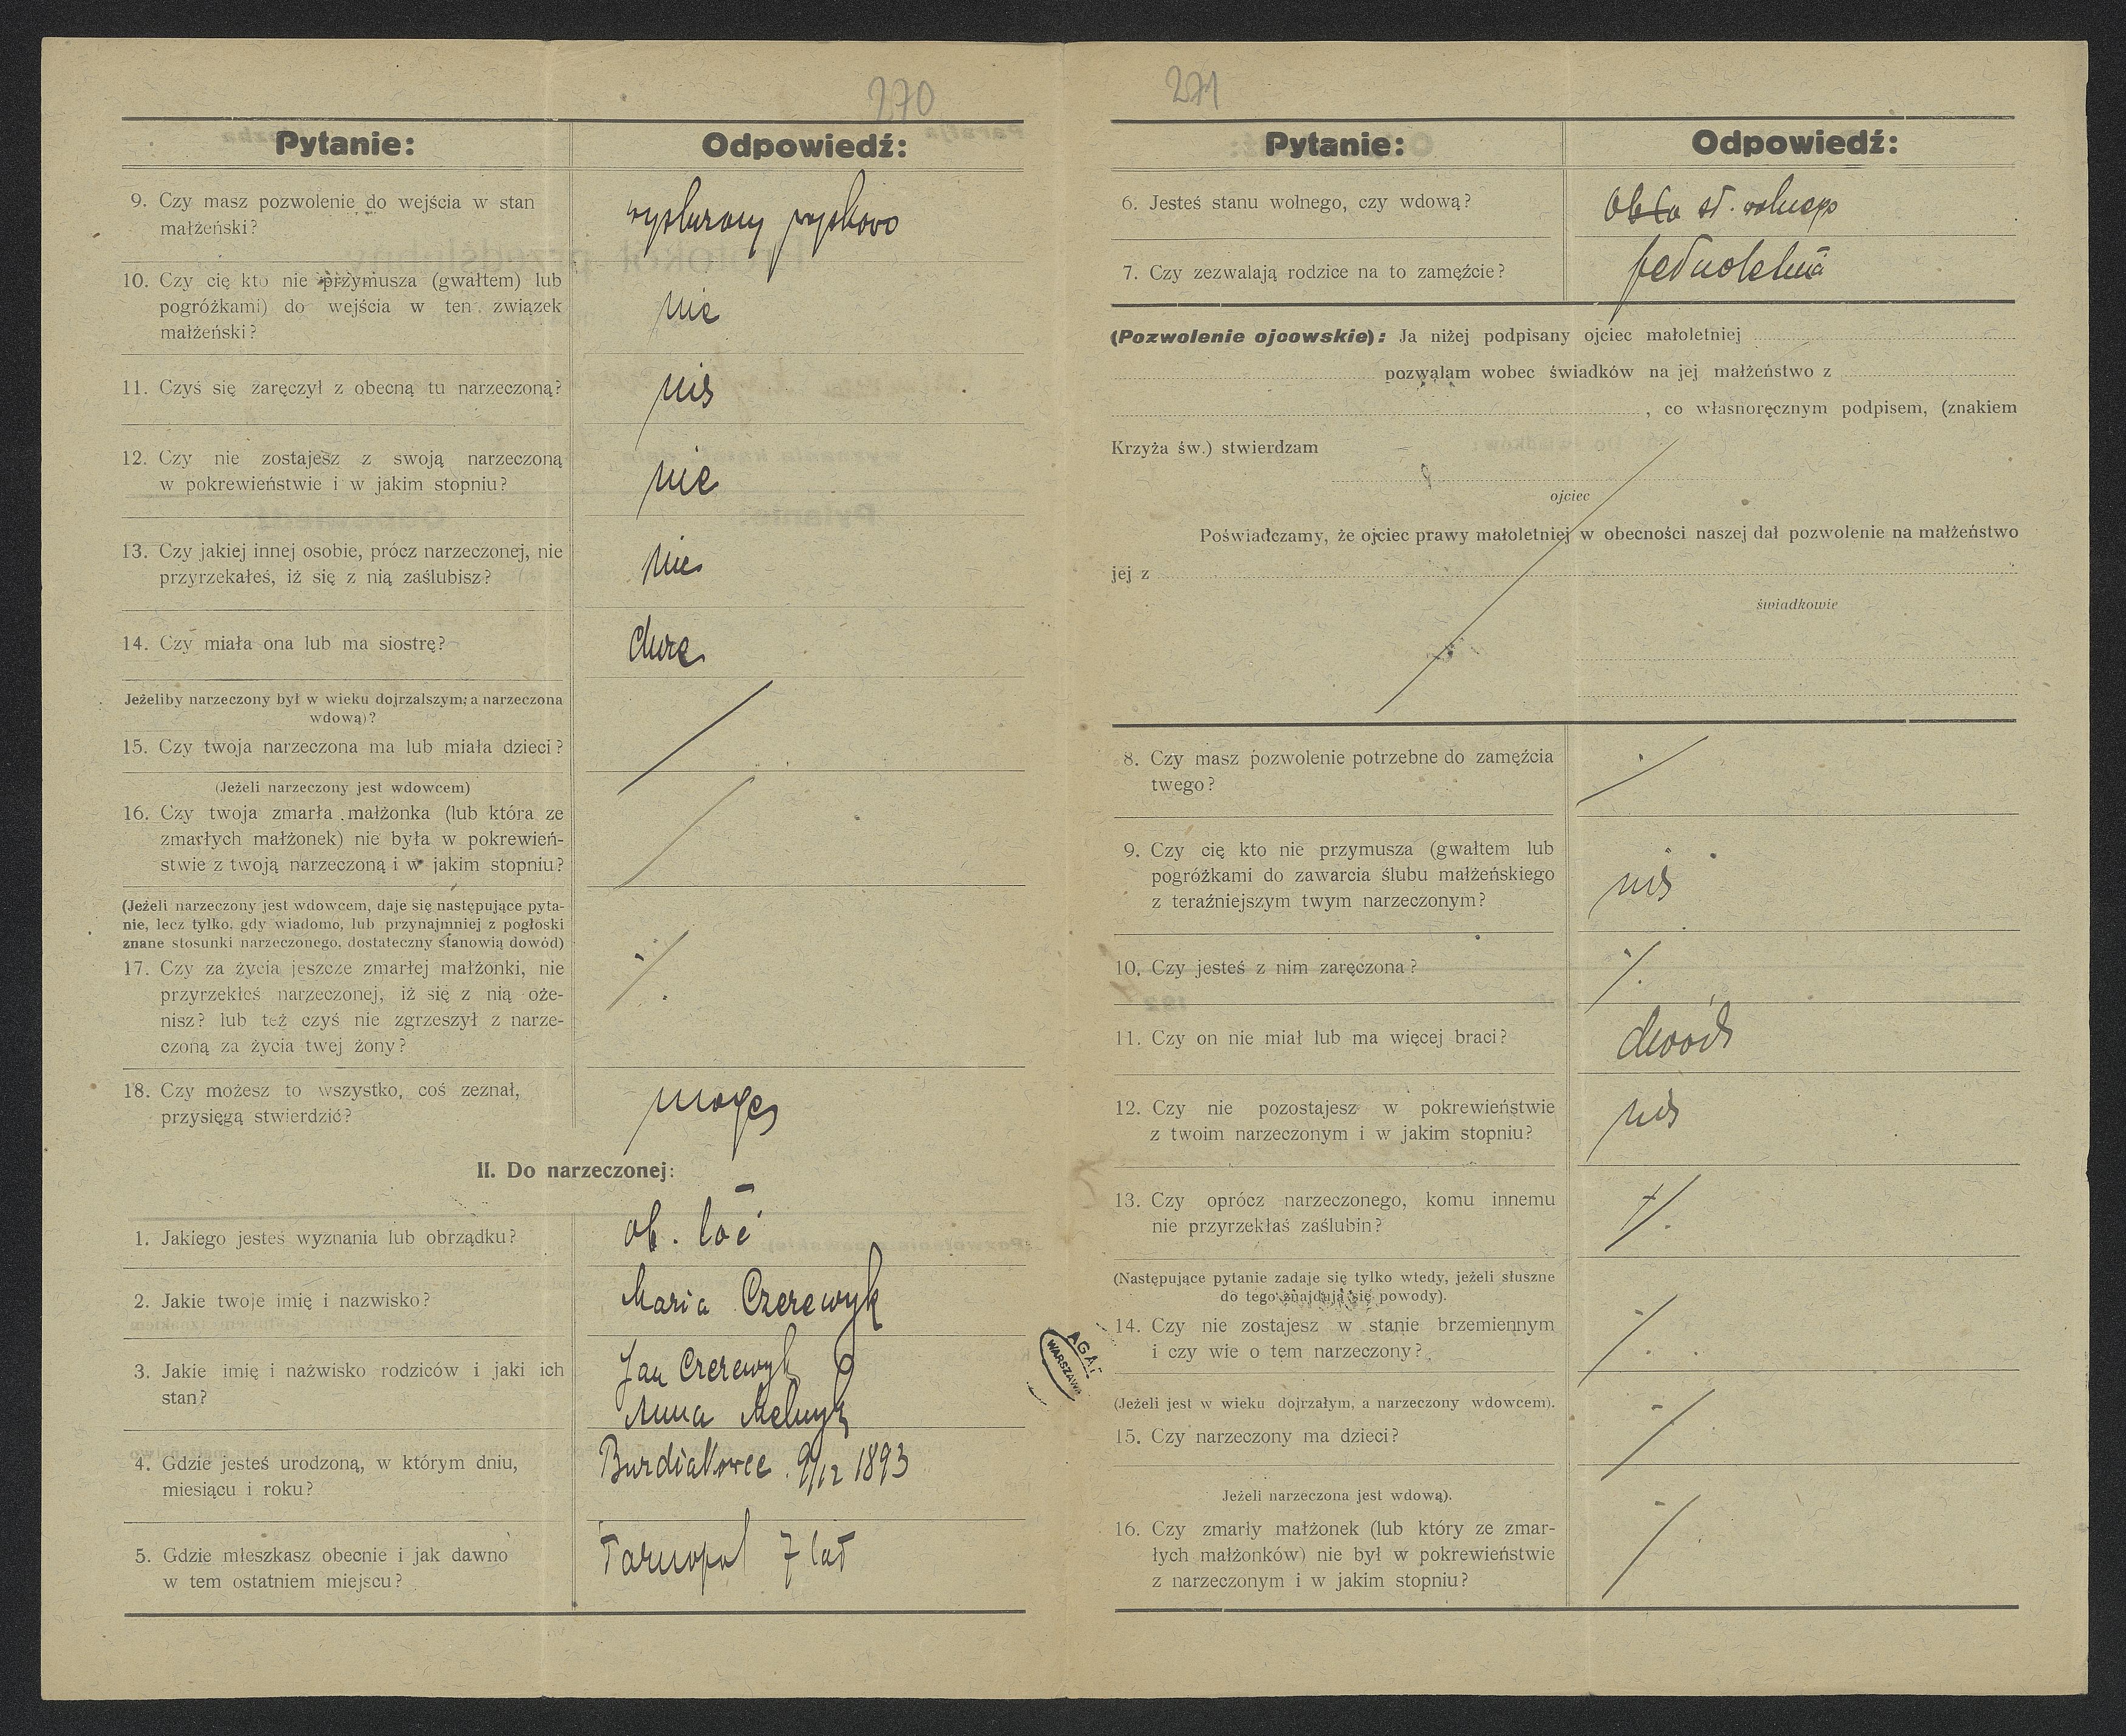 270
Pytanie:
Odpowiedź:
9. Czy masz pozwolenie do wejścia w stan
małżeński?
10. Czy cię kto nie przymusza (gwałtem) lub
pogróżkami) do wejścia w ten związek
małżeński?
nie
11. Czyś się zaręczył z obecną tu narzeczoną?
nie
12. Czy nie zostajesz z swoją narzeczoną
w pokrewieństwie i w jakim stopniu?
nie
13. Czy jakiej innej osobie, prócz narzeczonej, nie
przyrzekałeś, iż się z nią zaślubisz?
nie
14. Czy miała ona lub ma siostrę?
Jeżeliby narzeczony był w wieku dojrzalszym; a narzeczona
wdową)?
15. Czy twoja narzeczona ma lub miała dzieci?
(Jeżeli narzeczony jest wdowcem)
16. Czy twoja zmarła małżonka (lub która ze
zmarłych małżonek) nie była w pokrewień-
stwie z twoją narzeczoną i w jakim stopniu?
(Jeżeli narzeczony jest wdowcem, daje się następujące pyta-
nie, lecz tylko, gdy wiadomo, lub przynajmniej z pogłoski
znane stosunki narzeczonego, dostateczny stanowią dowód)
17. Czy za życia jeszcze zmarłej małżonki, nie
przyrzekłeś narzeczonej, iż się z nią oże-
nisz? lub też czyś nie zgrzeszył z narze-
czoną za życia twej żony?
18. Czy możesz to wszystko, coś zeznał,
przysięgą stwierdzić?
mogę
II. Do narzeczonej:
1. Jakiego jesteś wyznania lub obrządku?
ob. łać
2. Jakie twoje imię i nazwisko?
Maria Czerewyk
3. Jakie imię i nazwisko rodziców i jaki ich
stan?
Jan Czerewyk
Anna Melnyk
4. Gdzie jesteś urodzoną, w którym dniu,
miesiącu i roku?
Burdiakowce 9/12 1893
5. Gdzie mieszkasz obecnie i jak dawno
w tem ostatniem miejscu?
Tarnopol 7 lat
271
Pytanie:
Odpowiedź:
6. Jesteś stanu wolnego, czy wdową?
st. wolnego
7. Czy zezwalają rodzice na to zamęźcie?
(Pozwolenie ojcowskie): Ja niżej podpisany ojciec małoletniej
pozwalam wobec świadków na jej małżeństwo z
, co własnoręcznym podpisem, (znakiem
Krzyża św.) stwierdzam
ojciec
Poświadczamy, że ojciec prawy małoletniej w obecności naszej dał pozwolenie na małżeństwo
jej z
świadkowie
8. Czy masz pozwolenie potrzebne do zamęźcia
twego?
9. Czy cię kto nie przymusza (gwałtem lub
pogróżkami do zawarcia ślubu małżeńskiego
z teraźniejszym twym narzeczonym?
nie
10. Czy jesteś z nim zaręczona?
11. Czy on nie miał lub ma więcej braci?
12. Czy nie pozostajesz w pokrewieństwie
z twoim narzeczonym i w jakim stopniu?
nie
13. Czy oprócz narzeczonego, komu innemu
nie przyrzekłaś zaślubin?
(Następujące pytanie zadaje się tylko wtedy, jeżeli słuszne
do tego znajdują się powody).
14. Czy nie zostajesz w stanie brzemiennym
i czy wie o tem narzeczony?
(Jeżeli jest w wieku dojrzałym, a narzeczony wdowcem).
15. Czy narzeczony ma dzieci?
Jeżeli narzeczona jest wdową).
16. Czy zmarły małżonek (lub który ze zmar-
łych małżonków) nie był w pokrewieństwie
z narzeczonym i w jakim stopniu?
AGAD
WARSZAWA